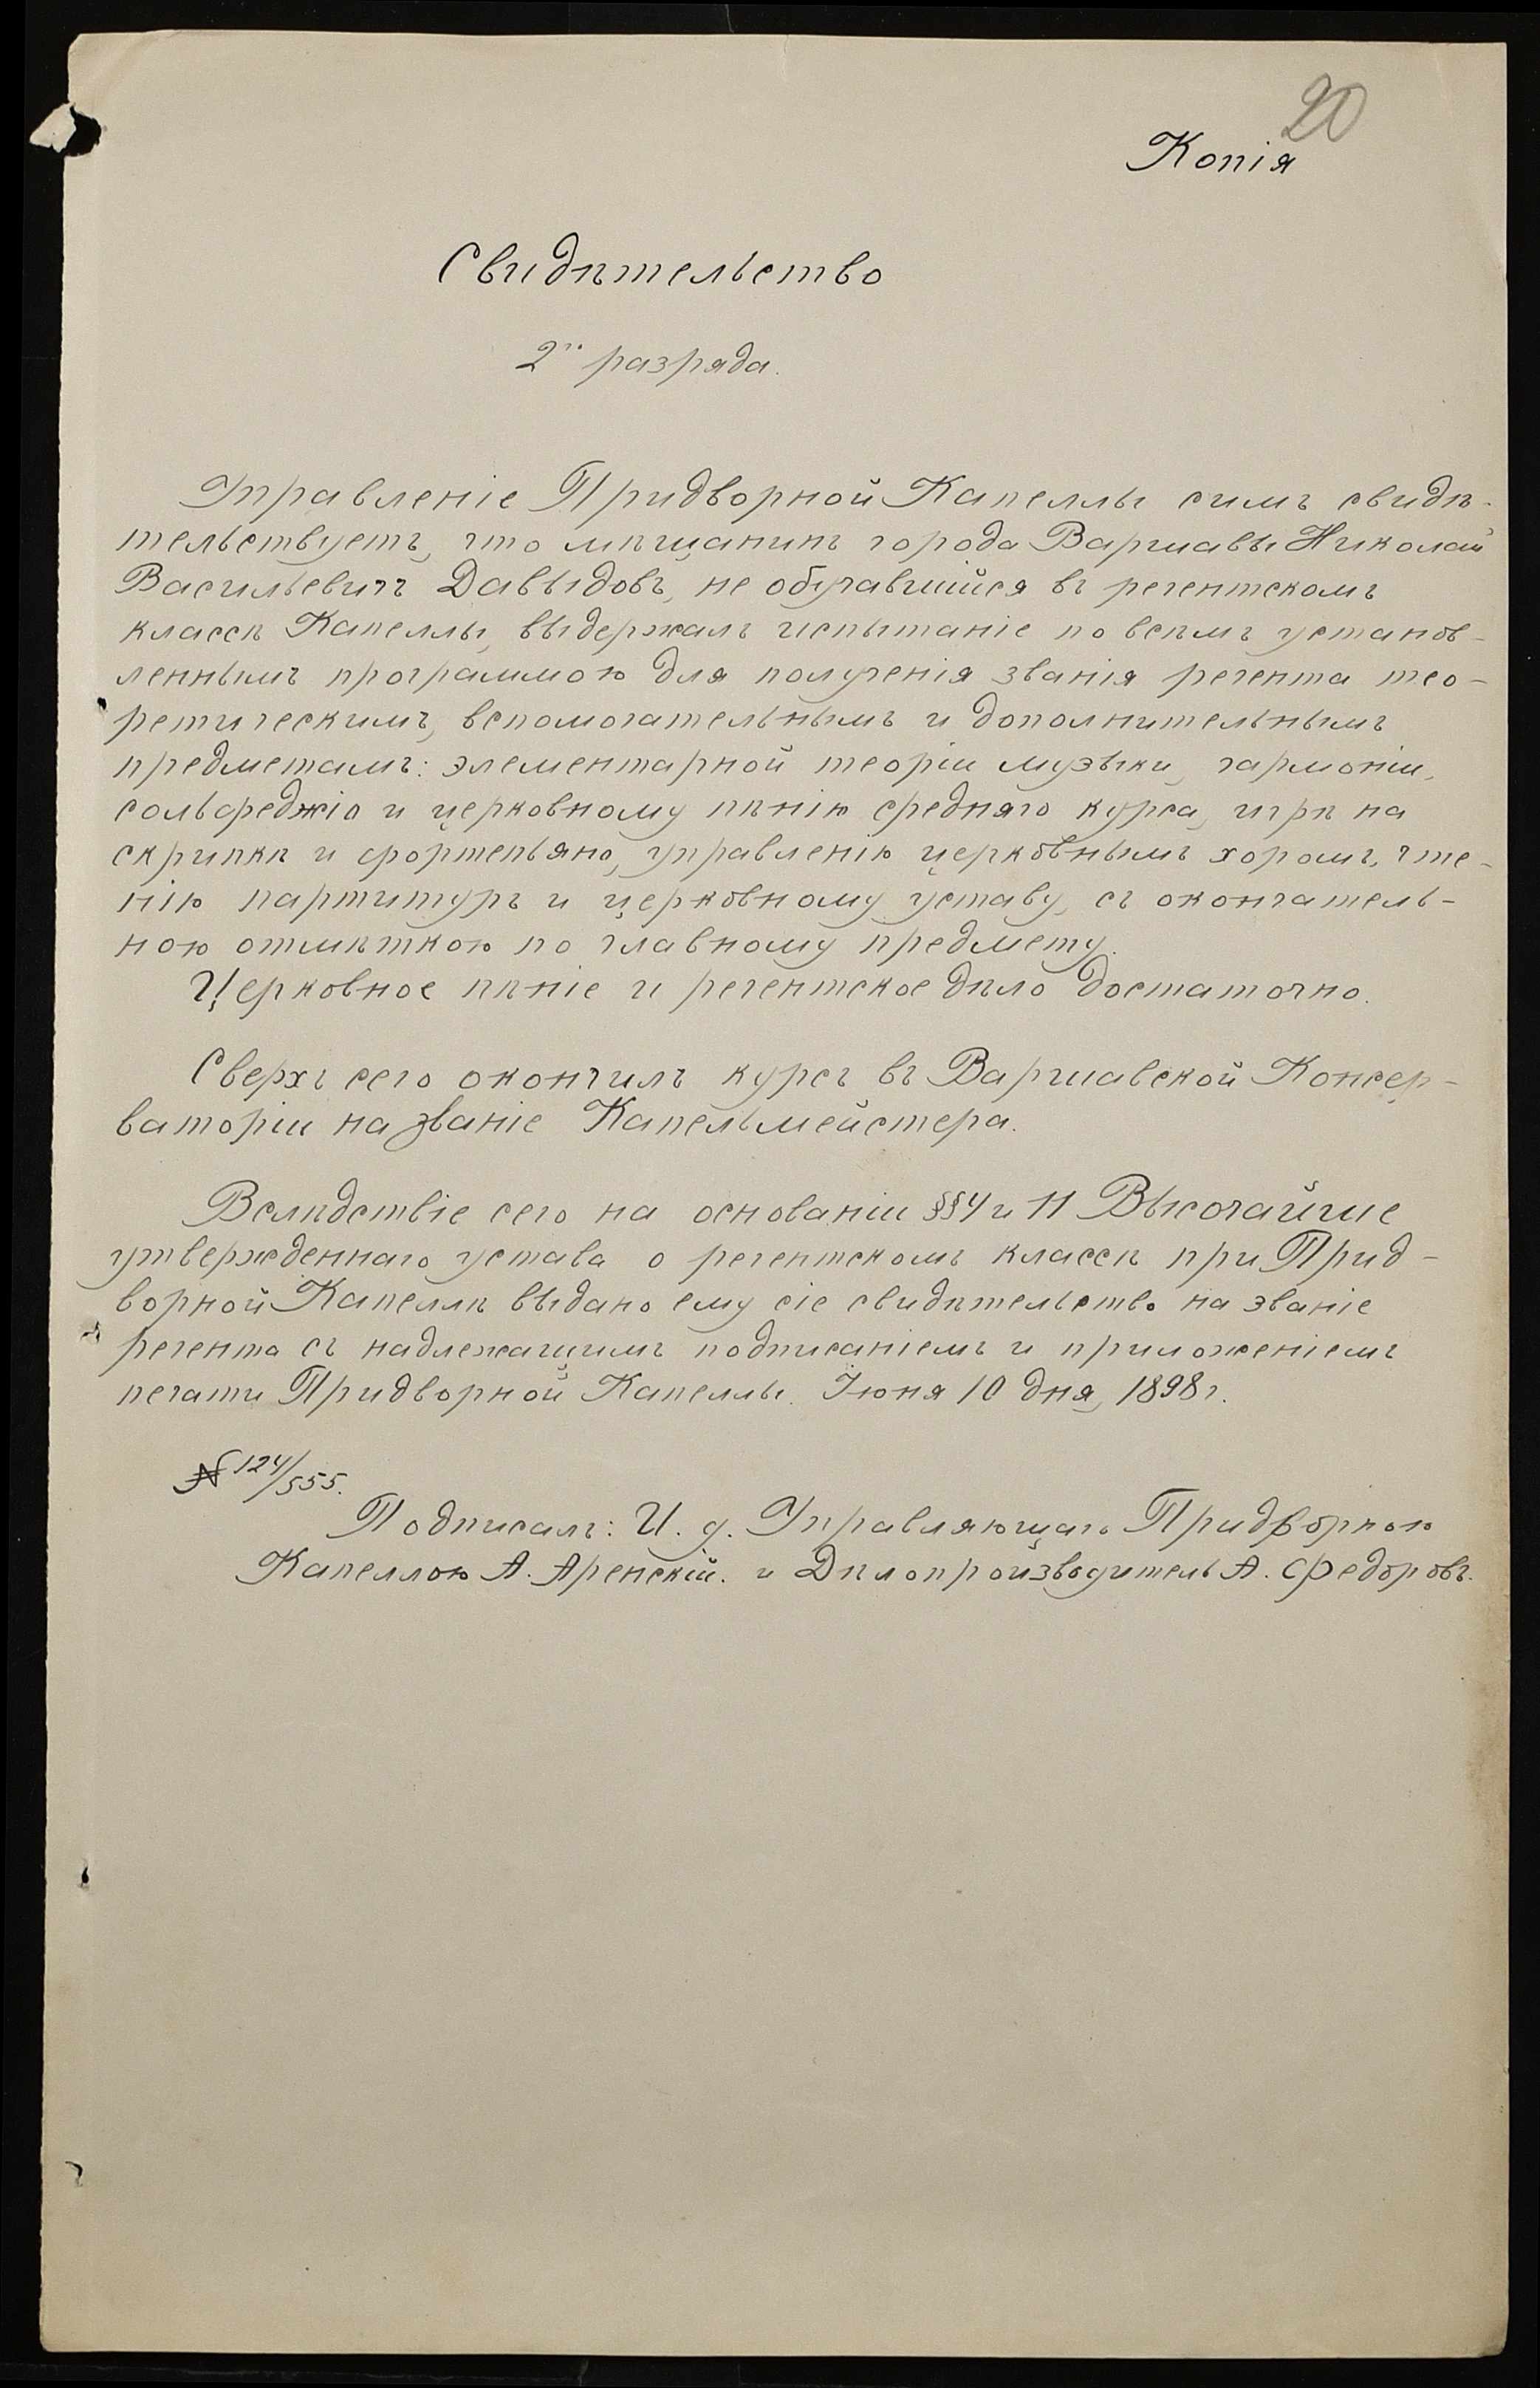 20
Копія
Свидѣтельство
2го разряда.
Управленіе Придворной Капеллы симъ свидѣ-
тельствуетъ, что мѣщанинъ города Варшавы Николай
Васильевичъ Давыдовъ, не обучавшійся въ регентскомъ
классѣ Капеллы, выдержалъ испытаніе по всѣмъ установ-
леннымъ программою для полученія званія регента тео-
ретическимъ, вспомогательнымъ и дополнительнымъ
предметамъ: элементарной теоріи музыки, гармоніи,
сольфеджіо и церковному пѣнію средняго курса, игрѣ на
скрипкѣ и фортепьяно, управленію церковнымъ хоромъ, чте-
нію партитуръ и церковному уставу, съ окончатель-
ною отмѣткою по главному предмету.
Церковное пѣніе и регентское дѣло достаточно.
Сверхъ сего окончилъ курсъ въ Варшавской Консер-
ваторіи на званіе Капельмейстера.
Вслѣдствіе сего на основаніи §§4 и 11 Высочайше
утвержденнаго устава о регентскомъ классѣ при Прид-
ворной Капеллѣ выдано ему сіе свидѣтельство на званіе
регента съ надлежащимъ подписаніемъ и приложеніемъ
печати Придворной Капеллы. Іюня 10 дня, 1898 г.
№ 124/555.
Подписалъ: И. д. Управляющаго Придворною
Капеллою А. Аренскій. и Дѣлопроизводитель А. Федоровъ.